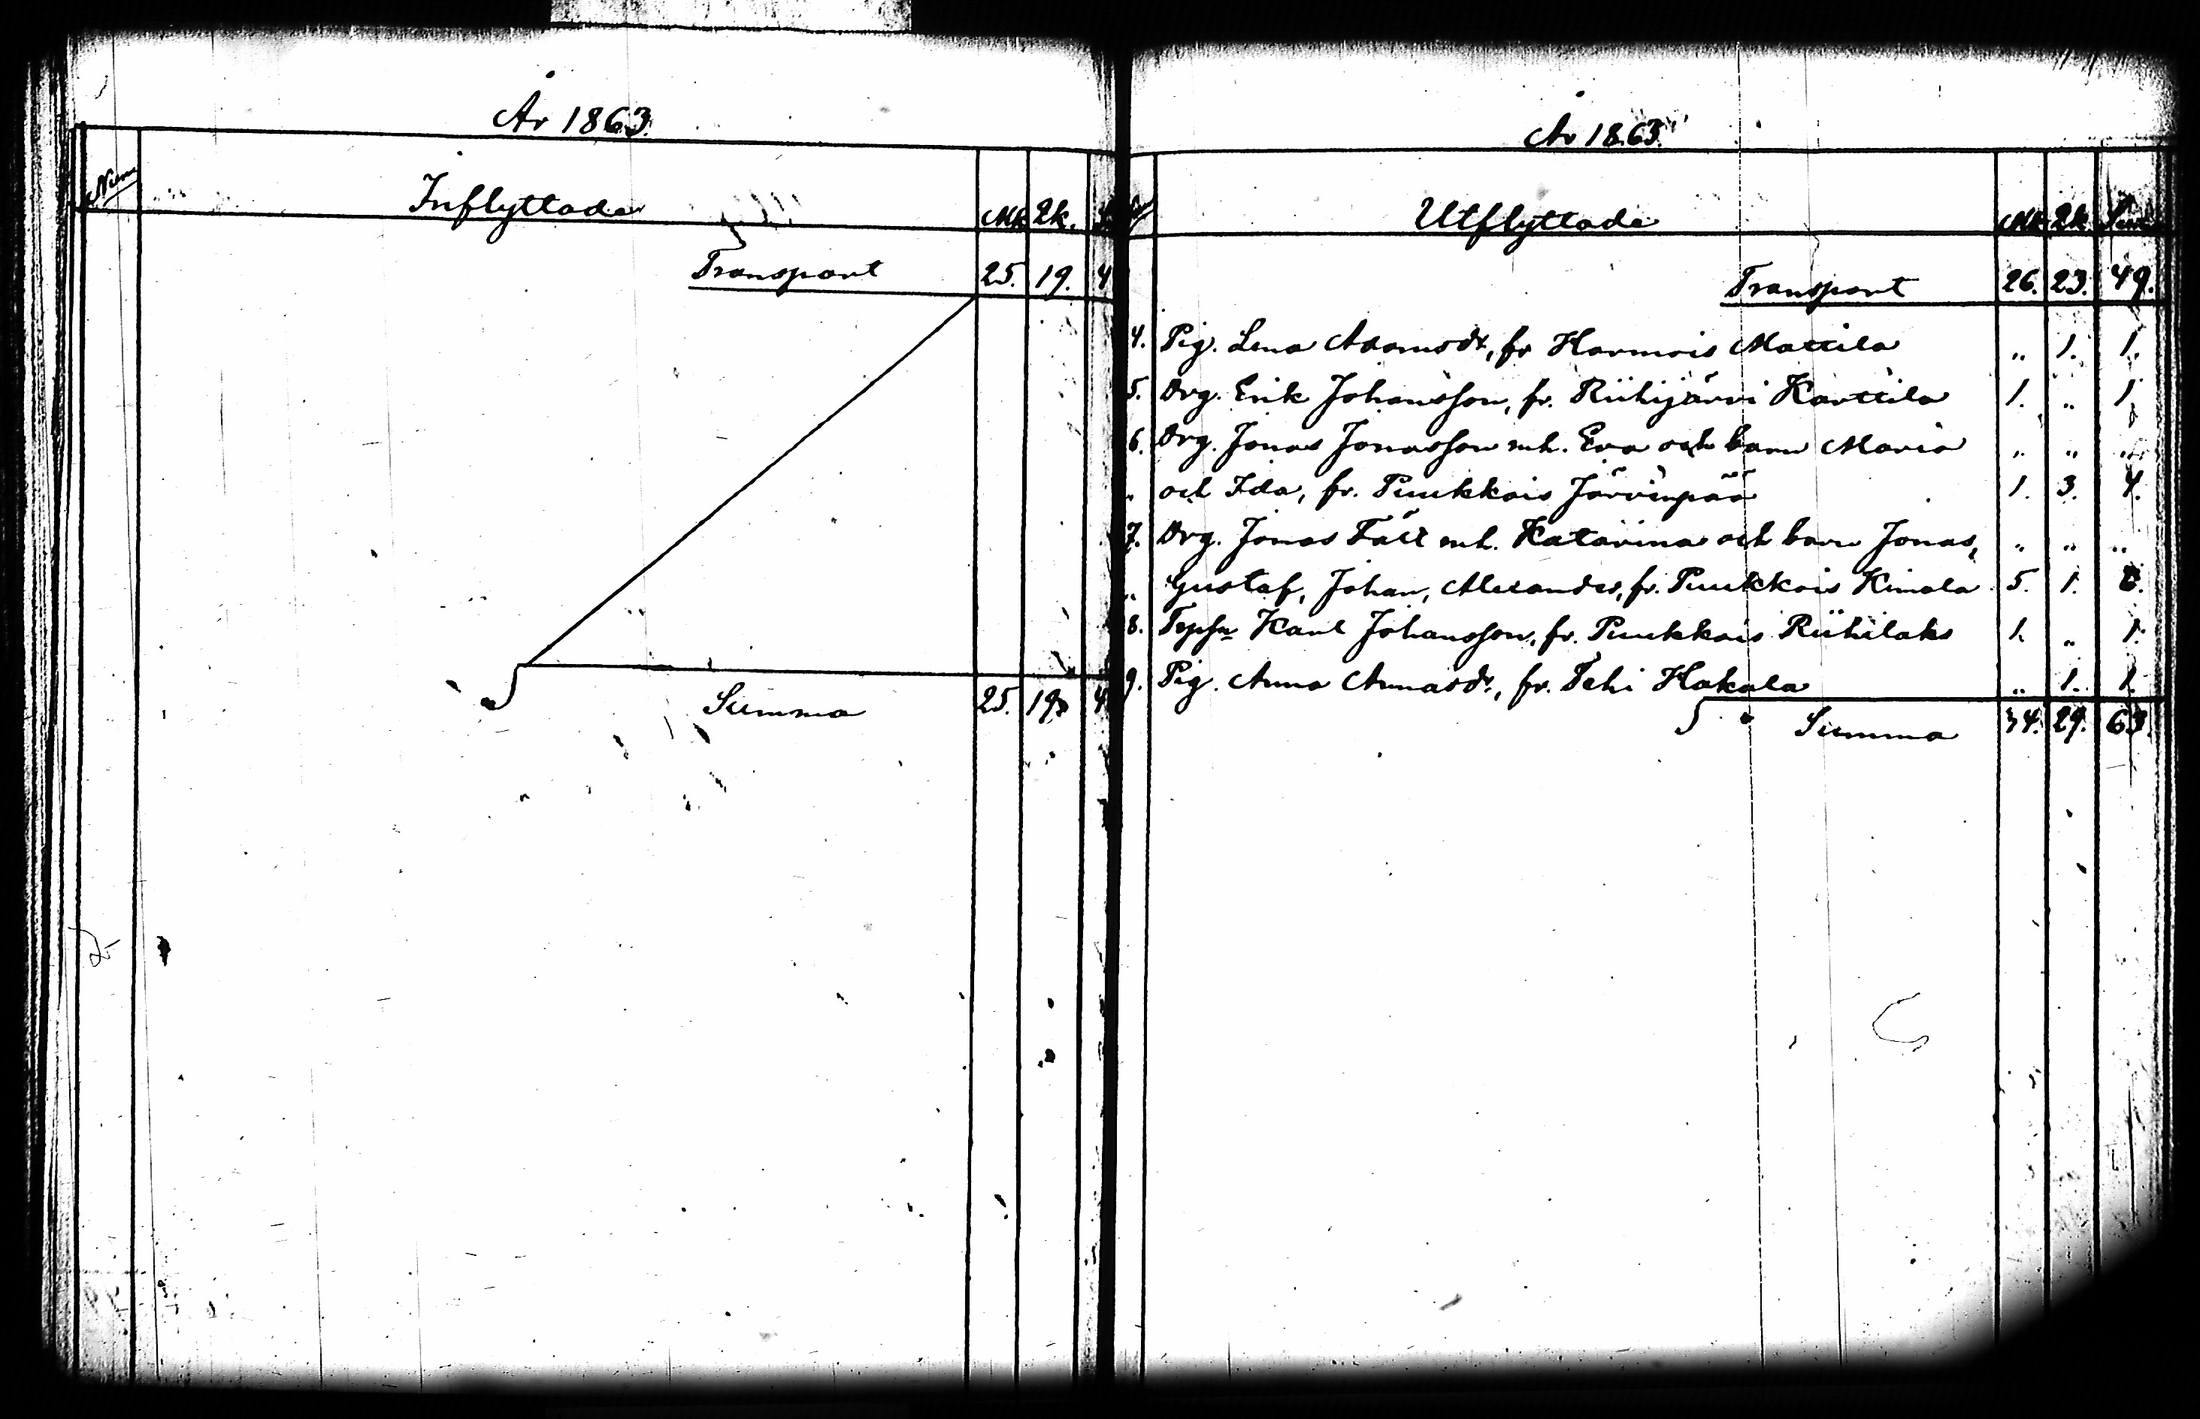 År 1863.
Num
Inflyttade
Mk. Qk.
Transport 25. 19. 4
Summa 25. 19. 4
År 1863.
Utflyttade
Mk. Qk. Sum
Transport 26. 23. 49.
4. Pig. Lena Adamsdr, fr Harmois Mattila „ 1. 1.
5. Drg. Erik Johansson, fr. Riihijärvi Karttila 1. „ 1.
6. Drg. Jonas Jonasson mh. Eva och barn Maria „ „ „
„ och Ida, fr. Puukkois Järvenpää 1. 3. 4.
7. Drg. Jonas Fält mh. Katarina och barn Jonas, „ „ „
„ Gustaf, Johan, Alexander, fr. Puukkois Kimola 5. 1. 6.
8. Karl Johansson, fr. Puukkois Riihilaks 1. „ 1.
9. Pig. Anna Annasdr., fr. Tehi Hakala „ 1. 1.
Summa 34. 29. 63.